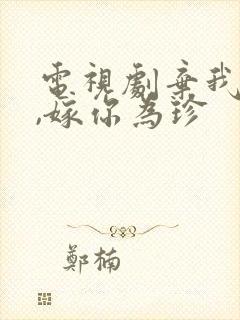 電視劇棄我
,嫁你為珍
鄭楠